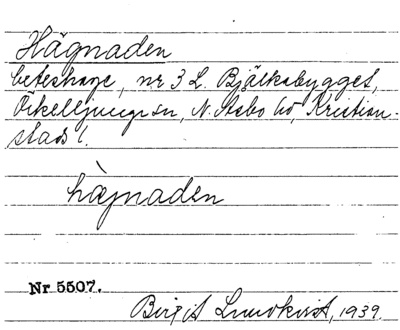 Hägnaden
beteshage, nr 3 L. Bjälkabygget,
Örkelljunga sn, N. Åsbo hd, Kristian-
stads l.
hägnaden
Nr 5507.
Birgit Lundkvist, 1939.